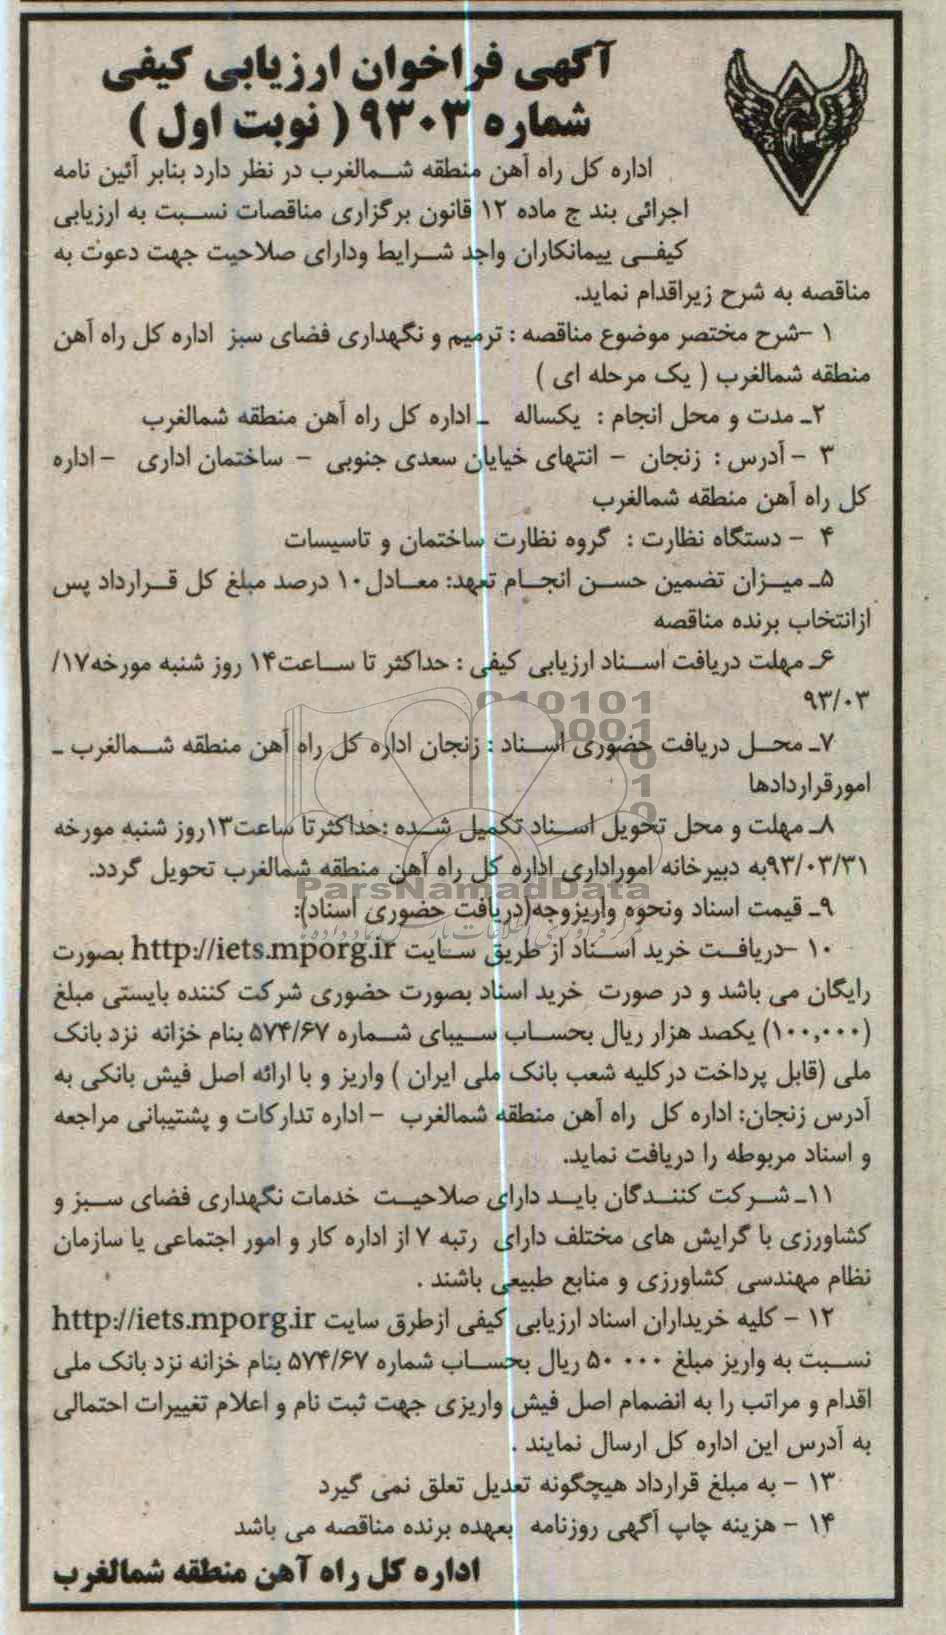 آگهی فراخوان ارزیابی کیفی
شماره ۹۳۰۳ ( نوبت اول )
اداره کل راه آهن منطقه شمالغرب در نظر دارد بنابر آئین نامه
اجرائی بند ج ماده ۱۲ قانون برگزاری مناقصات نسبت به ارزیابی
کیفی پیمانکاران واجد شرایط ودارای صلاحیت جهت دعوت به
مناقصه به شرح زیراقدام نماید.
۱ –شرح مختصر موضوع مناقصه : ترمیم و نگهداری فضای سبز اداره کل راه آهن
منطقه شمالغرب ( یک مرحله ای )
۲ـ مدت و محل انجام : یکساله ـ اداره کل راه آهن منطقه شمالغرب
۳ – آدرس : زنجان – انتهای خیابان سعدی جنوبی – ساختمان اداری – اداره
کل راه آهن منطقه شمالغرب
۴ – دستگاه نظارت : گروه نظارت ساختمان و تاسیسات
۵ـ میزان تضمین حسن انجام تعهد: معادل۱۰ درصد مبلغ کل قرارداد پس
ازانتخاب برنده مناقصه
۶ـ مهلت دریافت اسناد ارزیابی کیفی : حداکثر تا ساعت۱۴ روز شنبه مورخه۱۷/
۹۳/۰۳
۷ـ محل دریافت حضوری اسناد : زنجان اداره کل راه آهن منطقه شمالغرب ـ
امورقراردادها
۸ـ مهلت و محل تحویل اسناد تکمیل شده :حداکثرتا ساعت۱۳روز شنبه مورخه
۹۳/۰۳/۳۱به دبیرخانه اموراداری اداره کل راه آهن منطقه شمالغرب تحویل گردد.
ParsNamadData
۹ـ قیمت اسناد ونحوه واریزوجه(دریافت حضوری اسناد):
۱۰ –دریافت خرید اسناد از طریق سایت http://iets.mporg.ir بصورت
رایگان می باشد و در صورت خرید اسناد بصورت حضوری شرکت کننده بایستی مبلغ
(۱۰۰,۰۰۰) یکصد هزار ریال بحساب سیبای شماره ۵۷۴/۶۷ بنام خزانه نزد بانک
ملی (قابل پرداخت درکلیه شعب بانک ملی ایران ) واریز و با ارائه اصل فیش بانکی به
آدرس زنجان: اداره کل راه آهن منطقه شمالغرب – اداره تدارکات و پشتیبانی مراجعه
و اسناد مربوطه را دریافت نماید.
۱۱ـ شرکت کنندگان باید دارای صلاحیت خدمات نگهداری فضای سبز و
کشاورزی با گرایش های مختلف دارای رتبه ۷ از اداره کار و امور اجتماعی یا سازمان
نظام مهندسی کشاورزی و منابع طبیعی باشند .
۱۲ – کلیه خریداران اسناد ارزیابی کیفی ازطرق سایت http://iets.mporg.ir
نسبت به واریز مبلغ ۵۰۰۰۰ ریال بحساب شماره ۵۷۴/۶۷ بنام خزانه نزد بانک ملی
اقدام و مراتب را به انضمام اصل فیش واریزی جهت ثبت نام و اعلام تغییرات احتمالی
به آدرس این اداره کل ارسال نمایند .
۱۳ – به مبلغ قرارداد هیچگونه تعدیل تعلق نمی گیرد
۱۴ – هزینه چاپ آگهی روزنامه بعهده برنده مناقصه می باشد
اداره کل راه آهن منطقه شمالغرب